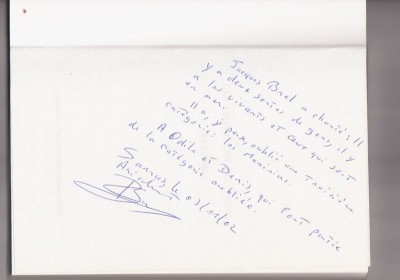 Jacques Brel a chanté : Il
y a deux sortes de gens, il y
a les vivants et ceux qui sont
en mer.
Il a, je pense, oublié une troisième
catégorie : les Mariniers.
A Odile et Denis, qui font partie
de la catégorie oubliée.
le 03/11/02
Amicalement